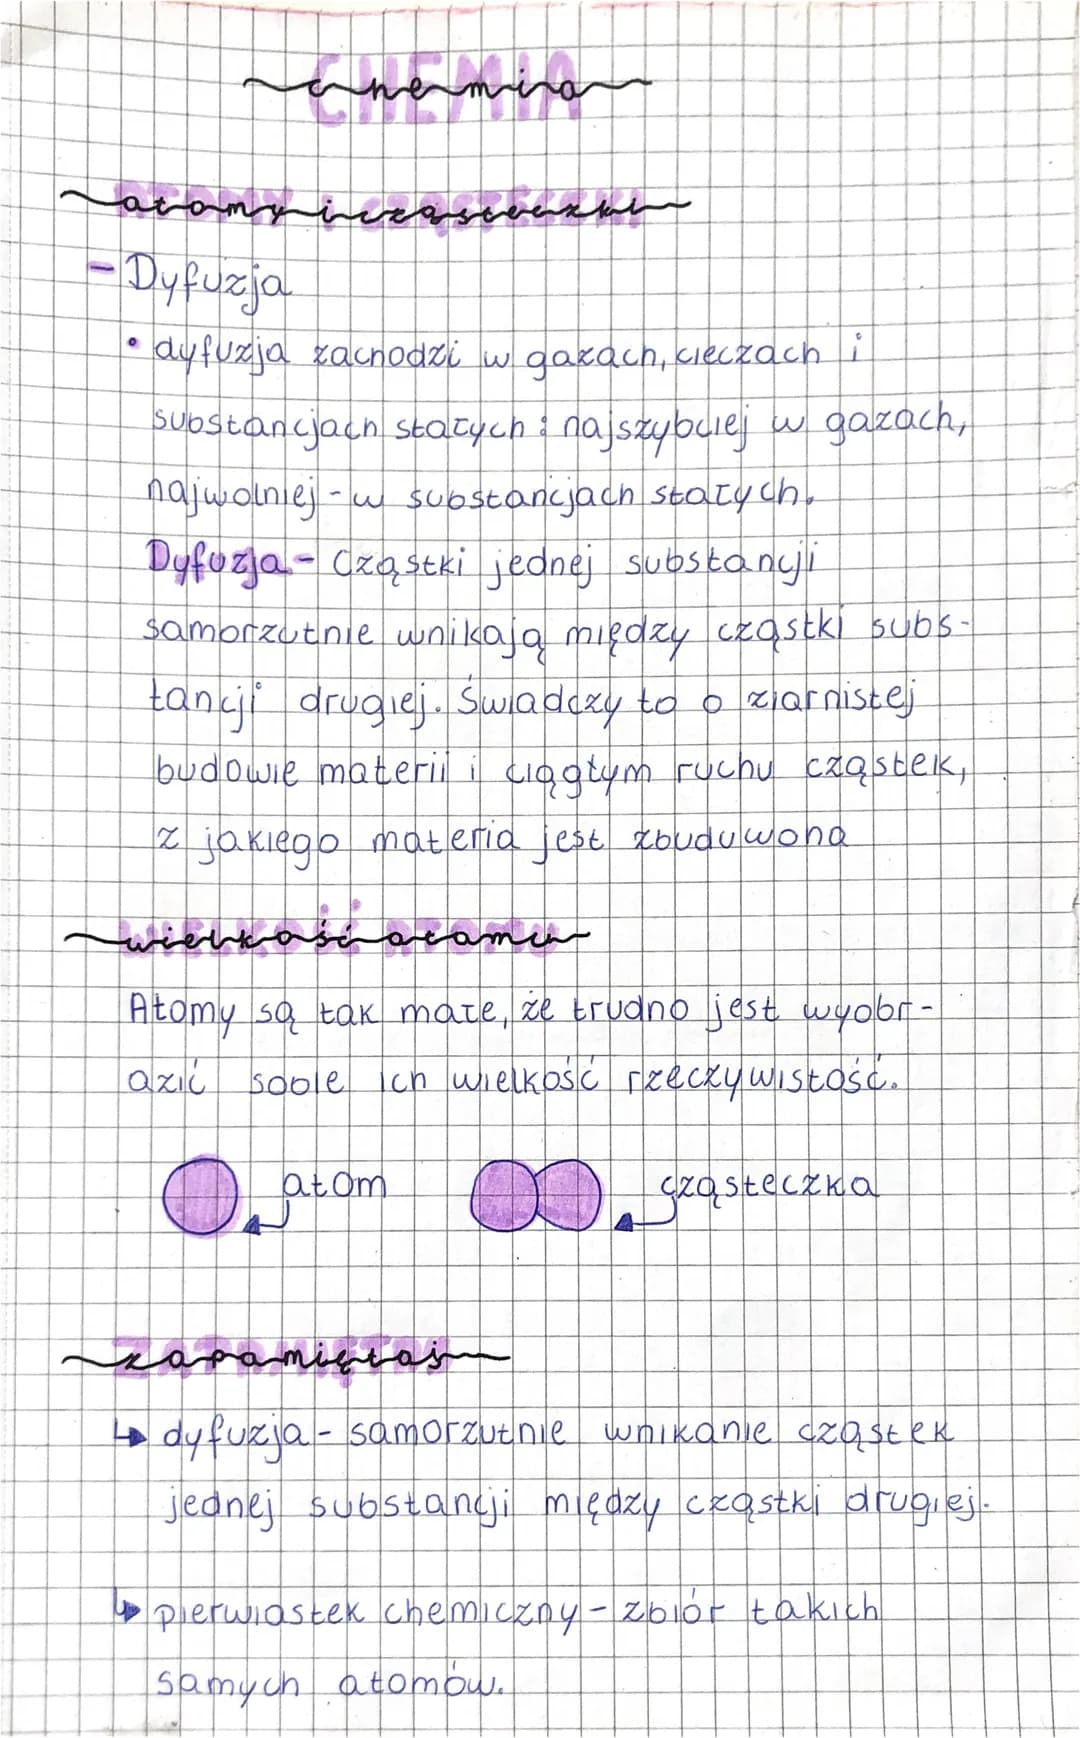 chemia
atomy i cząsteczki
- Dyfuzja
• dyfuzja zachodzi w gazach, cieczach i
substancjach stałych: najszybciej w gazach,
najwolniej - w substancjach stałych.
Dyfuzja - Cząstki jednej substancji
samorzutnie wnikają między cząstki subs-
tancji drugiej. Świadczy to o ziarnistej
budowie materii i ciągłym ruchu cząstek,
z jakiego materia jest zbuduwona
wielkość atomu
Atomy są tak małe, że trudno jest wyobr-
azić sobie ich wielkość rzeczywistość.
atom cząsteczka
zapamiętaj
↳ dyfuzja - samorzutnie wnikanie cząstek
jednej substancji między cząstki drugiej.
↳ pierwiastek chemiczny - zbiór takich
samych atomów.